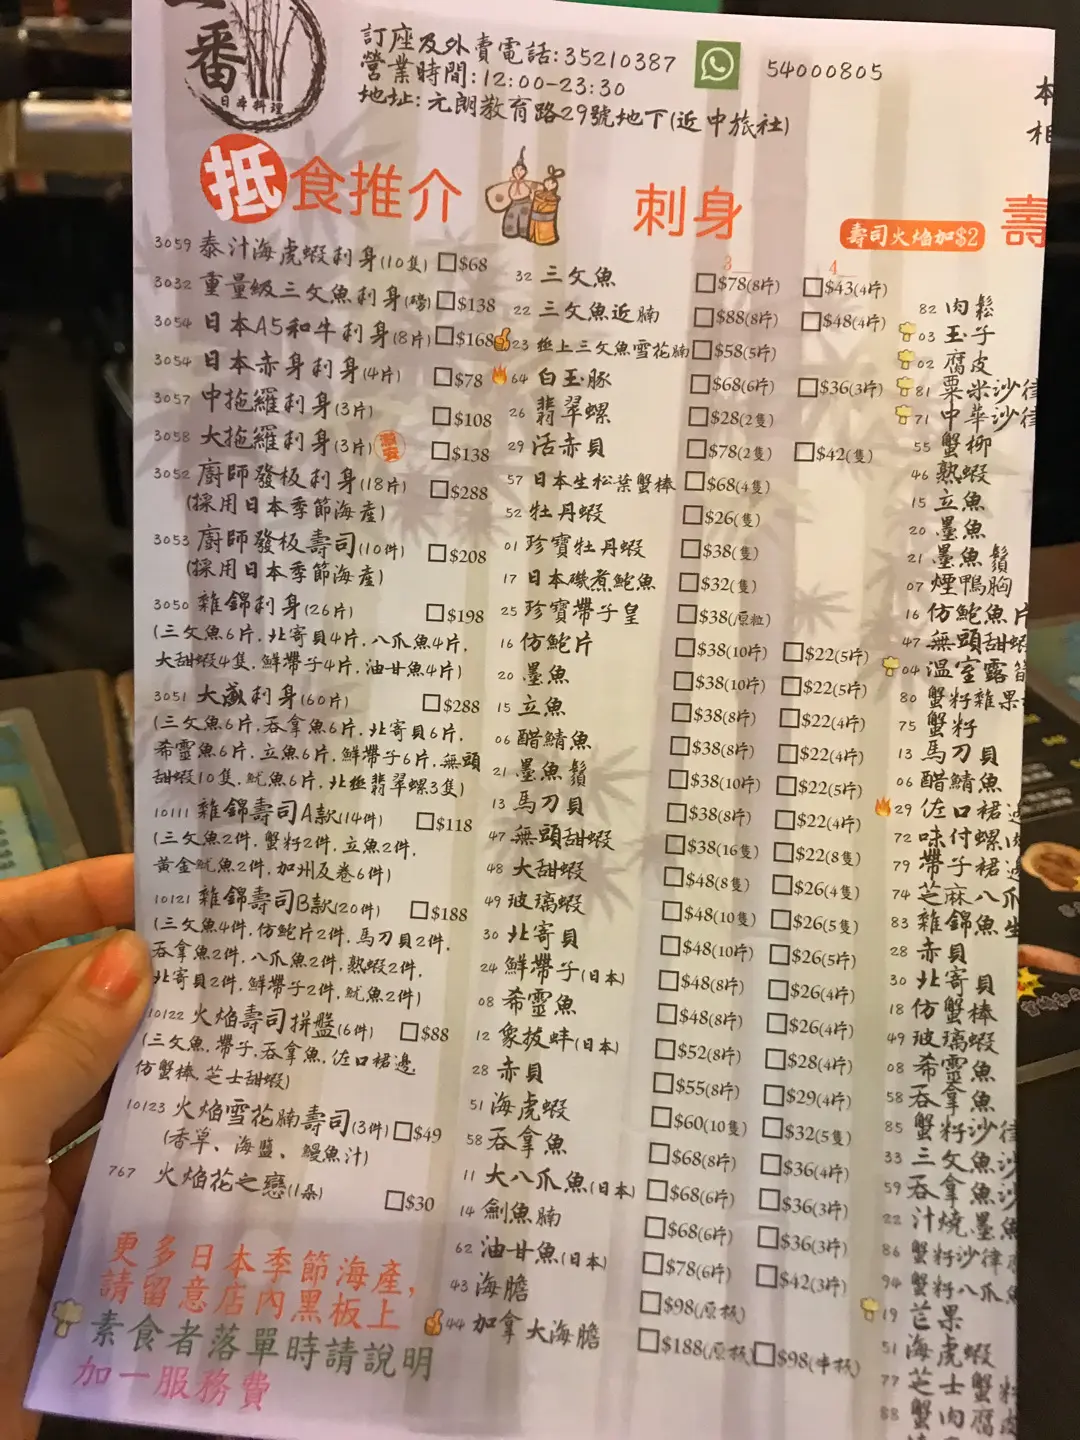 番
日本料理
訂座及外賣電話:35210387
54000805
營業時間:12:00-23:30
地址:元朗教育路29號地下(近中旅社)
本
抵食推介
3059 泰汁海虎蝦刺身(10隻) $68
3032 重量級三文魚刺身(磅) $138
3054 日本A5和牛刺身(8片) $168
3054 日本赤身刺身(4片) $78
3057 中拖羅刺身(3片) $108
3058 大拖羅刺身(3片) $138
3052 廚師發板刺身(18片) $288
(採用日本季節海產)
3053 廚師發板壽司(10件) $208
(採用日本季節海產)
3050 雜錦刺身(26片) $198
(三文魚6片,北寄貝4片,八爪魚4片,
大甜蝦4隻,鮮帶子4片,油甘魚4片)
3051 大盛刺身(60片) $288
(三文魚6片,吞拿魚6片,北寄貝6片,
希靈魚6片,立魚6片,鮮帶子6片,無頭
甜蝦10隻,魷魚6片,北極翡翠螺3隻)
10111 雜錦壽司A款(14件) $118
(三文魚2件,蟹籽2件,立魚2件,
黃金魷魚2件,加州反卷6件)
10121 雜錦壽司B款(20件) $188
(三文魚4件,仿鮑片2件,馬刀貝2件,
吞拿魚2件,八爪魚2件,熟蝦2件,
北寄貝2件,鮮帶子2件,魷魚2件)
10122 火焰壽司拼盤(6件) $88
(三文魚,帶子,吞拿魚,佐口裙邊,
仿蟹棒,芝士甜蝦)
10123 火焰雪花腩壽司(3件) $49
(香草、海鹽、鰻魚汁)
767 火焰花之戀(1朵) $30
更多日本季節海產,
請留意店內黑板上
素食者落單時請說明
加一服務費
刺身
3_ 4_
32 三文魚 $78(8片) $43(4片)
22 三文魚近腩 $88(8片) $48(4片)
23 極上三文魚雪花腩 $58(5片)
64 白玉豚 $68(6片) $36(3片)
26 翡翠螺 $28(2隻)
29 活赤貝 $78(2隻) $42(隻)
57 日本生松葉蟹棒 $68(4隻)
52 牡丹蝦 $26(隻)
01 珍寶牡丹蝦 $38(隻)
17 日本磯煮鮑魚 $32(隻)
25 珍寶帶子皇 $38(原粒)
16 仿鮑片 $38(10片) $22(5片)
20 墨魚 $38(10片) $22(5片)
15 立魚 $38(8片) $22(4片)
06 醋鯖魚 $38(8片) $22(4片)
21 墨魚鬚 $38(10片) $22(5片)
13 馬刀貝 $38(8片) $22(4片)
47 無頭甜蝦 $38(16隻) $22(8隻)
48 大甜蝦 $48(8隻) $26(4隻)
49 玻璃蝦 $48(10隻) $26(5隻)
30 北寄貝 $48(10片) $26(5片)
24 鮮帶子(日本) $48(8片) $26(4片)
08 希靈魚 $48(8片) $26(4片)
12 象拔蚌(日本) $52(8片) $28(4片)
28 赤貝 $55(8片) $29(4片)
51 海虎蝦 $60(10隻) $32(5隻)
58 吞拿魚 $68(8片) $36(4片)
11 大八爪魚(日本) $68(6片) $36(3片)
14 劍魚腩 $68(6片) $36(3片)
62 油甘魚(日本) $78(6片) $42(3片)
43 海膽 $98(原板)
44 加拿大海膽 $188(原板) $98(半板)
壽
壽司火焰加$2
82 肉鬆
03 玉子
02 腐皮
81 粟米沙律
71 中華沙律
55 蟹柳
46 熟蝦
15 立魚
20 墨魚
21 墨魚鬚
07 煙鴨胸
16 仿鮑魚片
47 無頭甜蝦
04 溫室露筍
80 蟹籽雜果
75 蟹籽
13 馬刀貝
06 醋鯖魚
29 佐口裙邊
72 味付螺肉
79 帶子裙邊
74 芝麻八爪
83 雜錦魚生
28 赤貝
30 北寄貝
18 仿蟹棒
49 玻璃蝦
08 希靈魚
58 吞拿魚
85 蟹籽沙律
33 三文魚沙
59 吞拿魚沙
22 汁燒墨魚
86 蟹籽沙律
94 蟹籽八爪魚
19 芒果
51 海虎蝦
77 芝士蟹籽
88 蟹肉腐皮